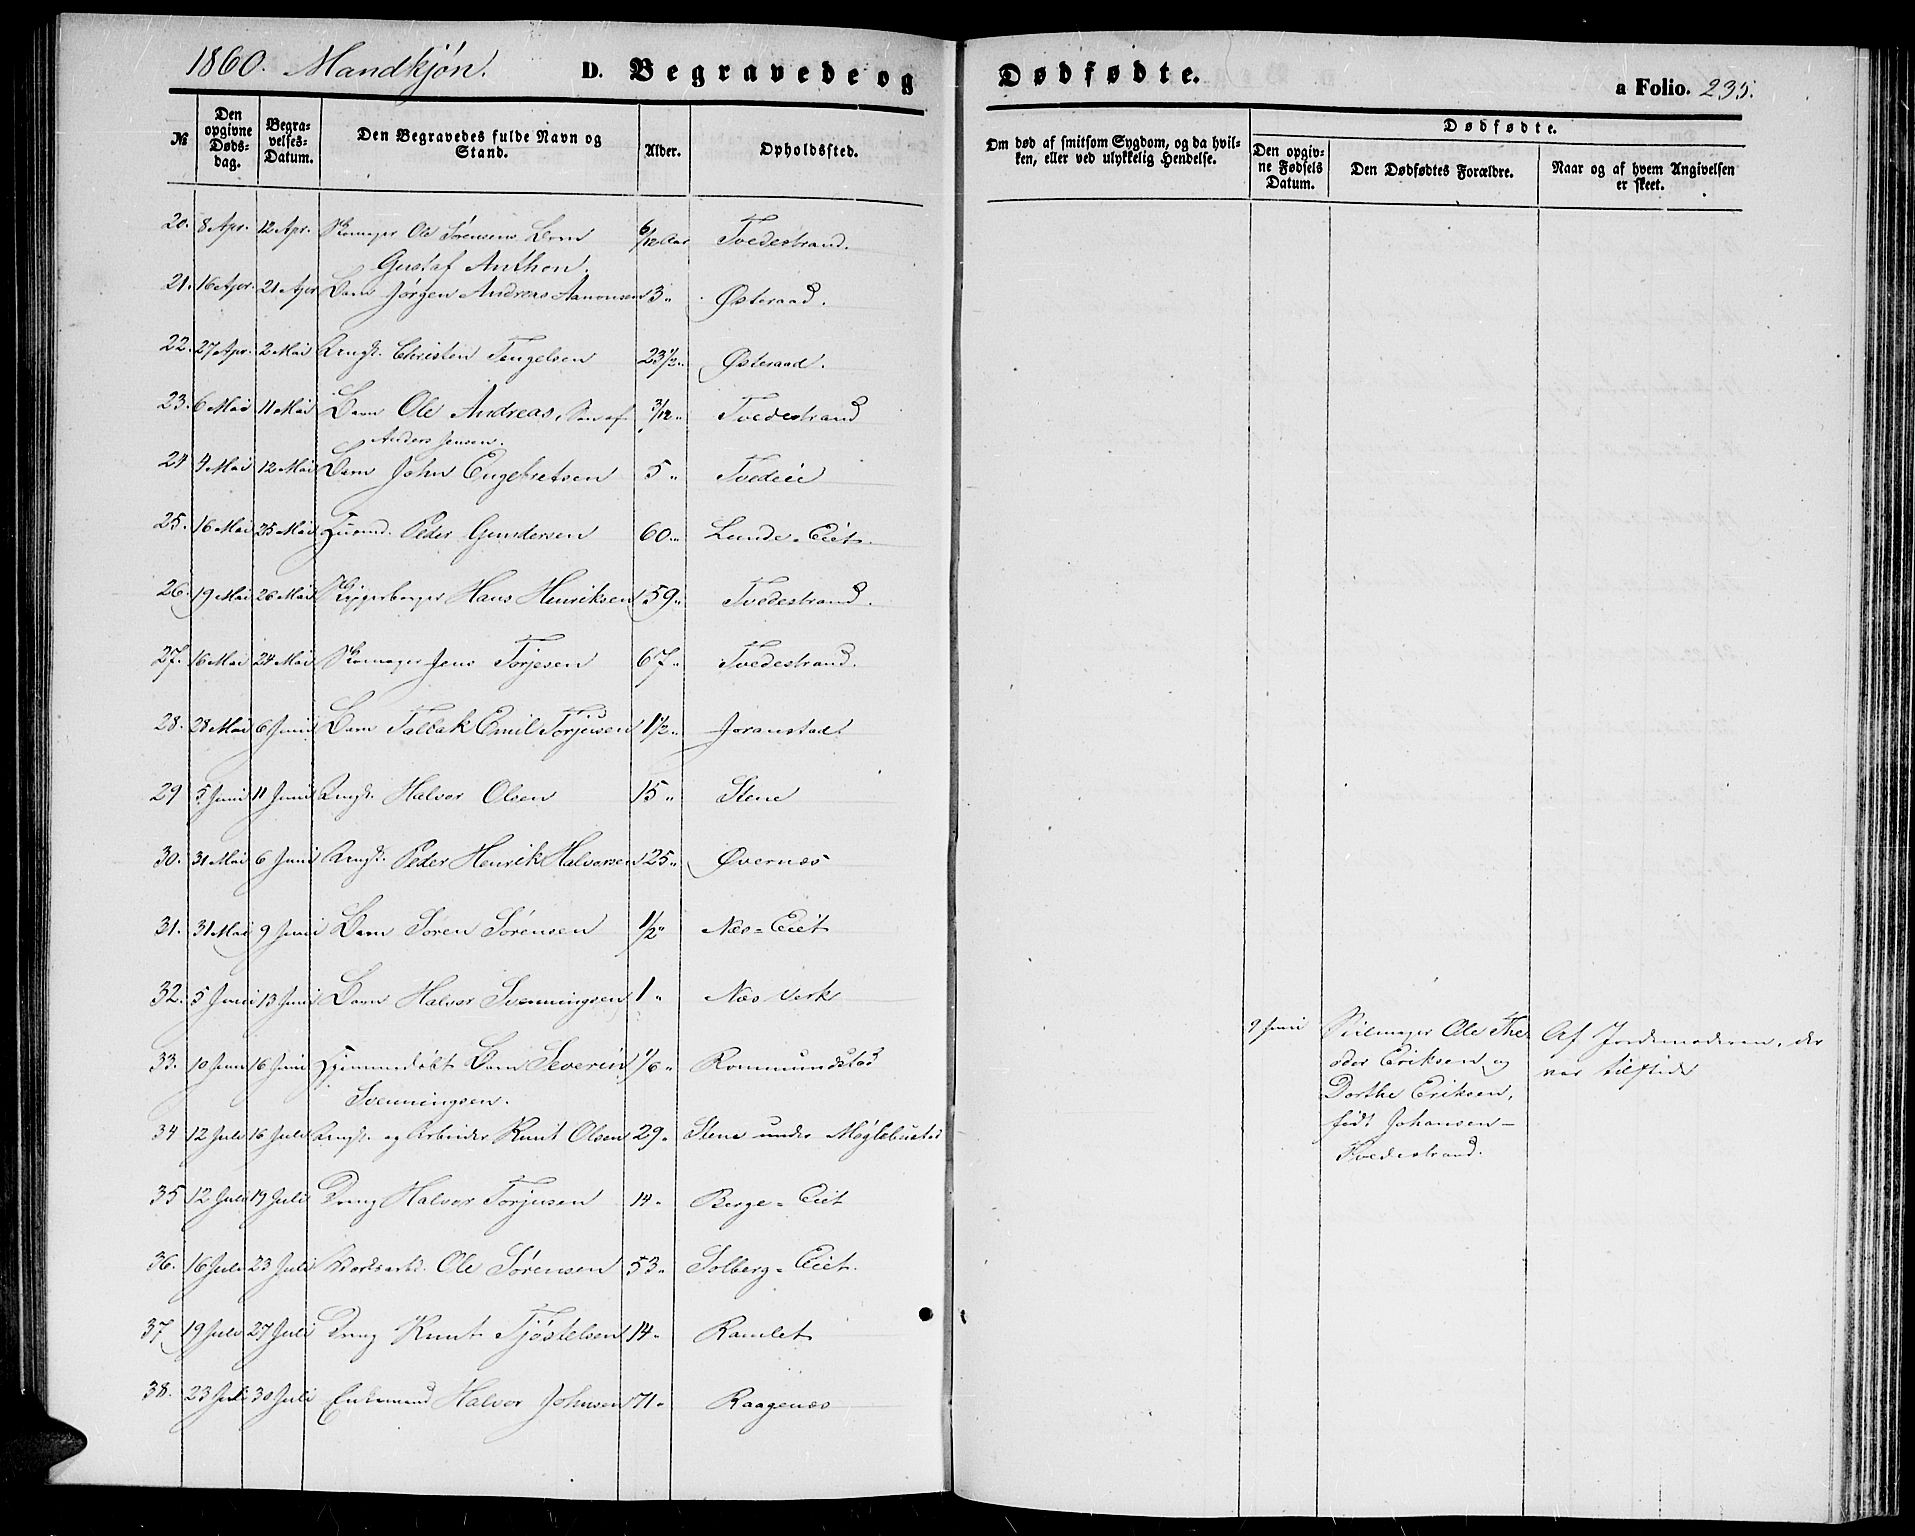 1860. Mandkjön. D. Begravede og Dødfødte. a Folio. 235.
№ Den opgivne Døds-dag. Begra-velses-Datum. Den Begravedes fulde Navn og Stand. Alder. Opholdssted. Om død af smitsom Sygdom, og da hvil-ken, eller ved ulykkelig Hendelse. Dødfødte. Den opgiv-ne Fødsels Datum. Den Dødfødtes Forældre. Naar og af hvem Angivelsen er skeet.
20. 8 Apr. 12 Apr. Skomager Ole Sörensens Barn 6/12 Aar Tvedestrand.
Gustaf Anthon.
21. 16 Apr. 21 Apr Barn Jörgen Andreas Aanonsen 3 " Østeraad.
22. 27 Apr. 2 Mai Ungk. Christen Tengelsen 23 1/2 " Østeraad.
23. 6 Mai 11 Mai Barn Ole Andreas, Sön af 3/12 " Tvedestrand
Anders Jensen.
24 4 Mai 12 Mai Barn John Engebretsen 5 " Tvedeie
25. 16 Mai 25 Mai Huusmd. Peder Gundersen 60 " Lunde-Eiet.
26. 19 Mai 26 Mai Hans Henriksen 59 " Tvedestrand.
27. 16 Mai 24 Mai Skomager Jens Torjesen 67 " Tvedestrand.
28. 28 Mai 6 Juni Barn Tallak Emil Torjusen 1 1/2 " Joranstad
29 5 Juni 11 Juni Ungk. Halvor Olsen 15 " Stene
30. 31 Mai 6 Juni Ungk. Peder Henrik Halvorsen 25 " Övernæs
31. 31 Mai 9 Juni Barn Sören Sörensen 1/2 " Næs-Eiet
32. 5 Juni 13 Juni Barn Halvor Svenningsen 1 " Næs Verk
33. 10 Juni 16 Juni Hjemmedöbt Barn Severin 1/6 " Rommundstad
Svenningsen.
34 12 Juli 16 Juli Ungk. og Arbeider Knut Olsen 29 " Stene under
35 12 Juli 19 Juli Dreng Halvor Torjusen 14 " Berge-Eiet
36. 16 Juli 23 Juli Ole Sörensen 53 " Solberg-Eiet.
37 19 Juli 27 Juli Dreng Knut Tjöstelsen 14 " Ramlet
38. 23 Juli 30 Juli Enkemand Halvor Johnsen 71 " Raagenæs
9 Juni Seilmager Ole The-
odor Eriksen og
Dorthe Eriksen,
födt Johansen-
Tvedestrand.
Af Jordemoderen, der
var tilstede